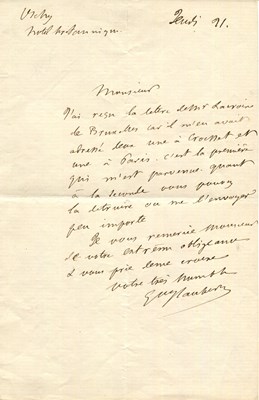 Vichy
hotel britannique
Jeudi 21.
Monsieur
J'ai reçu la lettre de Mr Lacroix
de Bruxelles car il m'en avait
adressé deux une à Croisset et
une à Paris. c'est la première
qui m'est parvenue quant
à la seconde vous pouvez
la détruire ou me l'envoyer
peu importe
Je vous remercie Monsieur
de votre extrême obligeance
& vous prie de me croire
votre très humble
G Flaubert